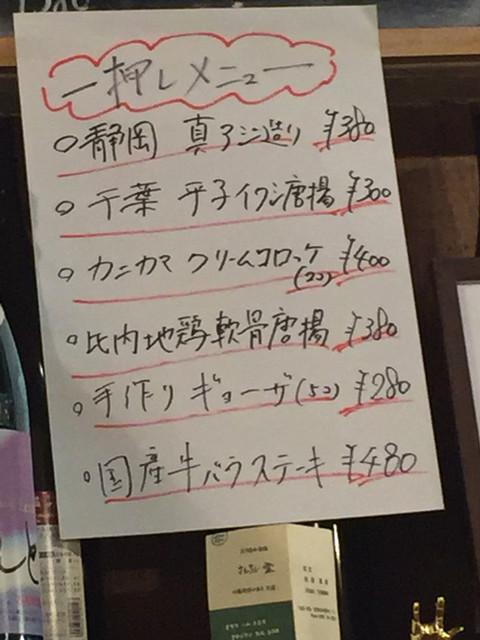 一押しメニュー
○静岡 真アジ造り ¥380
○千葉 平子イワシ唐揚 ¥300
○カニカマ クリームコロッケ(2コ) ¥400
○比内地鶏軟骨唐揚 ¥380
○手作り ギョーザ(5コ) ¥280
○国産牛バラステーキ ¥480